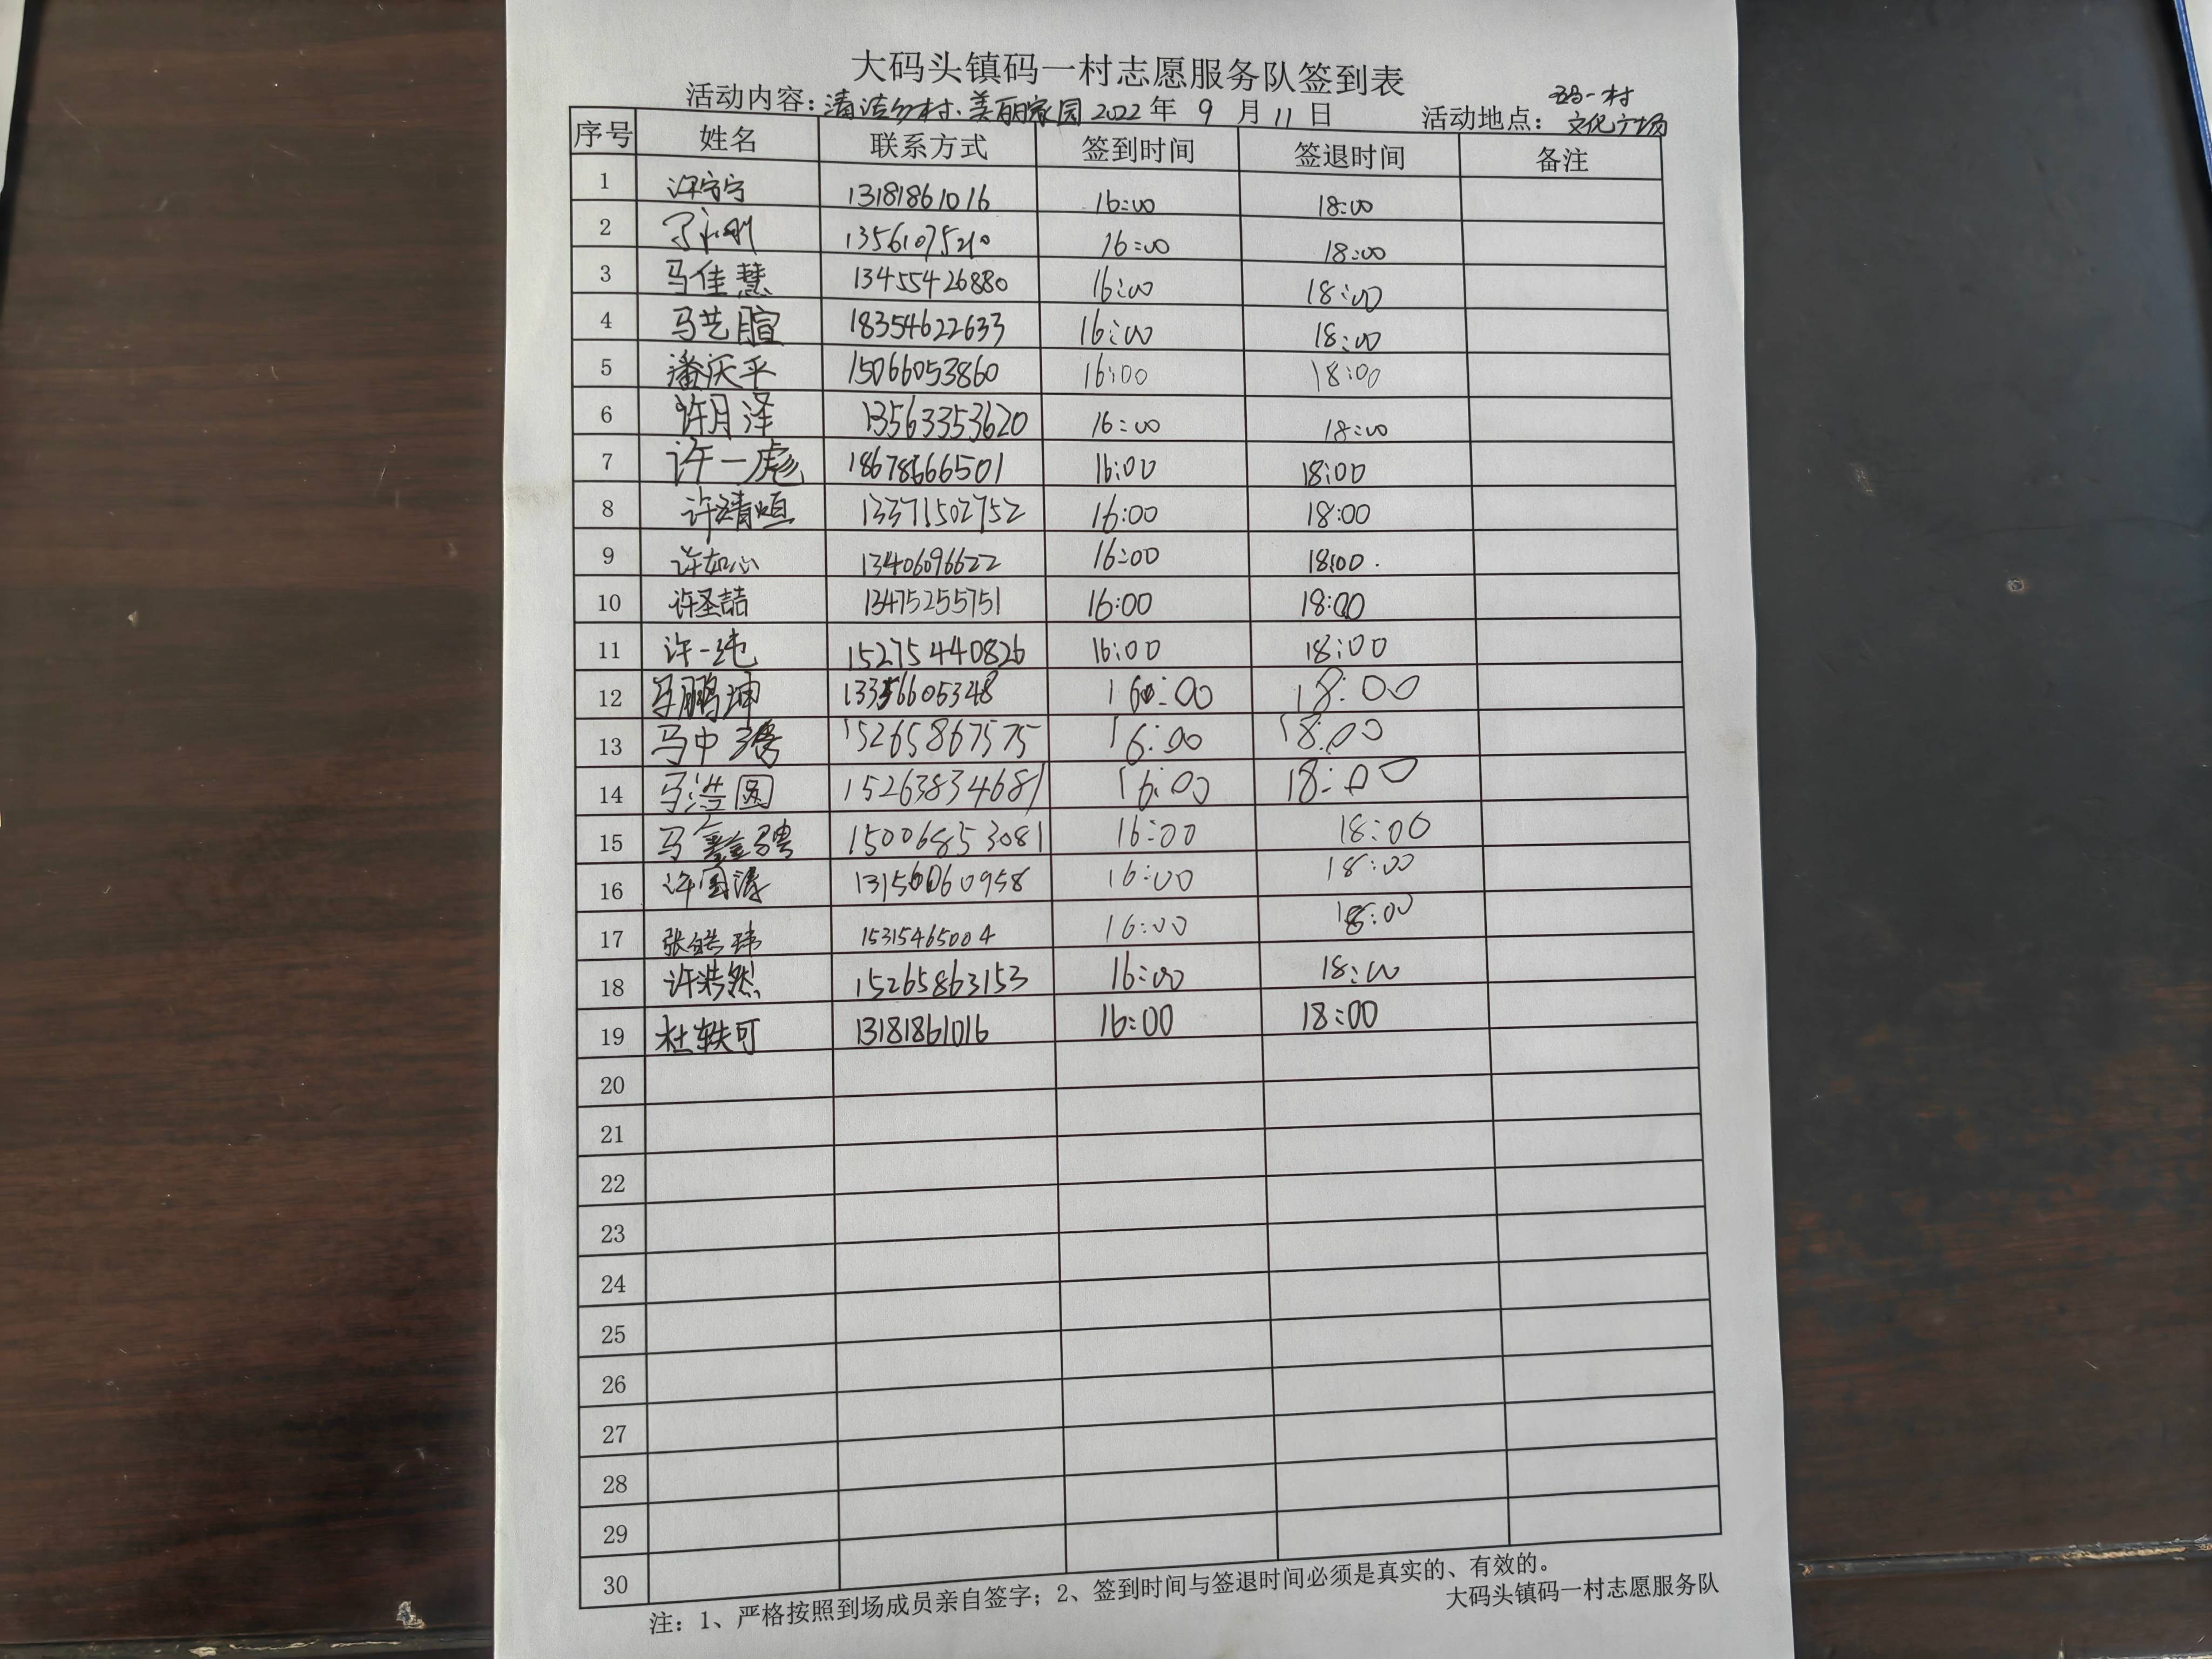 大码头镇码一村志愿服务队签到表
活动内容：清洁乡村·美丽家园 2022年 9 月 11 日 活动地点：码一村文化广场
序号 姓名 联系方式 签到时间 签退时间 备注
1 许宁宁 13181861016 16:00 18:00
2 13561075210 16:00 18:00
3 马佳慧 13455426880 16:00 18:00
4 马艺暄 18354622633 16:00 18:00
5 潘庆平 15066053860 16:00 18:00
6 许月泽 13563353620 16:00 18:00
7 许一彪 18678666501 16:00 18:00
8 许靖烜 13371502752 16:00 18:00
9 许如心 13406096622 16:00 18:00.
10 许圣喆 13475255751 16:00 18:00
11 许一纯 15275440826 16:00 18:00
12 马鹏坤 13356605348 16:00 18:00
13 马中 15265867575 16:00 18:00
14 马浩圆 15263834681 16:00 18:00
15 马鑫骋 15006853081 16:00 18:00
16 许国涛 16:00 18:00
17 张皓玮 15315465004 16:00 18:00
18 许浩然 15265863153 16:00 18:00
19 杜轶可 13181861016 16:00 18:00
20
21
22
23
24
25
26
27
28
29
30
注：1、严格按照到场成员亲自签字；2、签到时间与签退时间必须是真实的、有效的。
大码头镇码一村志愿服务队